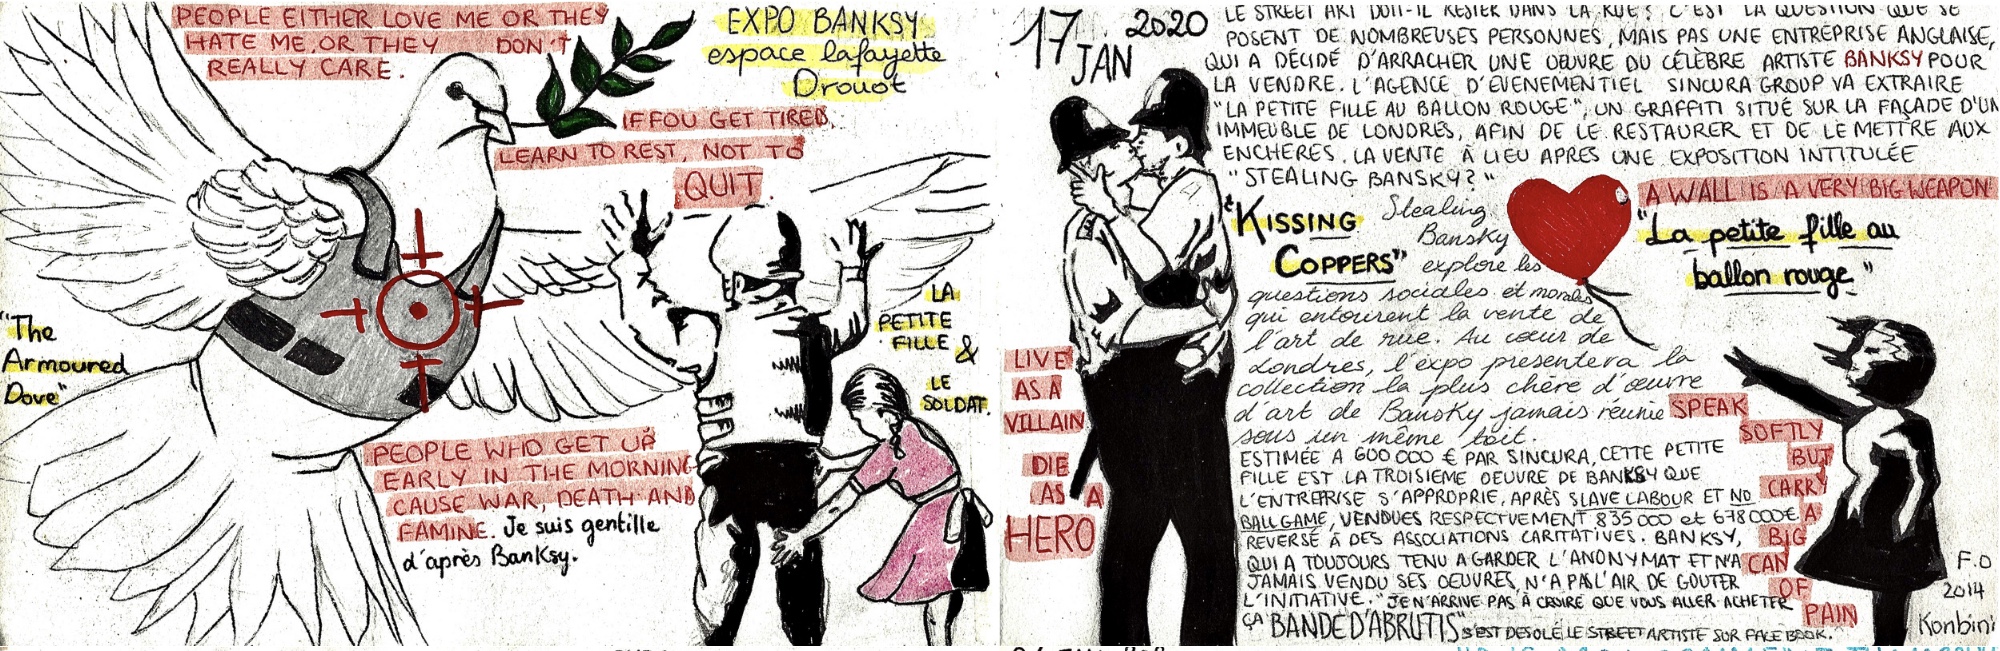 PEOPLE EITHER LOVE ME OR THEY
HATE ME, OR THEY DON'T
REALLY CARE.
EXPO BANKSY
espace lafayette
Drouot
IF FOU GET TIRED,
LEARN TO REST, NOT TO
QUIT.
"The
Armoured
Dove"
LA
PETITE
FILLE &
LE
SOLDAT.
PEOPLE WHO GET UP
EARLY IN THE MORNING
CAUSE WAR, DEATH AND
FAMINE. Je suis gentille
d'après Banksy.
17 JAN 2020
LE STREET ART DOIT-IL RESTER DANS LA RUE? C'EST LA QUESTION QUE SE
POSENT DE NOMBREUSES PERSONNES, MAIS PAS UNE ENTREPRISE ANGLAISE,
QUI A DÉCIDÉ D'ARRACHER UNE OEUVRE DU CÉLÈBRE ARTISTE BANKSY POUR
LA VENDRE. L'AGENCE D'ÉVENEMENTIEL SINCURA GROUP VA EXTRAIRE
"LA PETITE FILLE AU BALLON ROUGE", UN GRAFFITI SITUÉ SUR LA FAÇADE D'UN
IMMEUBLE DE LONDRES, AFIN DE LE RESTAURER ET DE LE METTRE AUX
ENCHÈRES. LA VENTE À LIEU APRES UNE EXPOSITION INTITULÉE
"STEALING BANSKY?"
"KISSING
COPPERS"
Stealing
Bansky
explore les
questions sociales et morales
qui entourent la vente de
l'art de rue. Au cœur de
Londres, l'expo presentera la
collection la plus chère d'œuvre
d'art de Bansky jamais réunie
sous un même toit.
A WALL IS A VERY BIG WEAPON
"La petite fille au
ballon rouge"
LIVE
AS A
VILLAIN
DIE
AS A
HERO
SPEAK
SOFTLY
BUT
CARRY
A
BIG
CAN
OF
PAIN
ESTIMÉE A 600 000 € PAR SINCURA, CETTE PETITE
FILLE EST LA TROISIEME OEUVRE DE BANKSY QUE
L'ENTREPRISE S'APPROPRIE, APRÈS SLAVE LABOUR ET NO
BALL GAME, VENDUES RESPECTVEMENT 835 000 et 678 000€
REVERSÉ À DES ASSOCIATIONS CARITATIVES. BANKSY,
QUI A TOUJOURS TENU A GARDER L'ANONYMAT ET N'A
JAMAIS VENDU SES OEUVRES, N'A PAS L'AIR DE GOUTER
L'INITIATIVE. "JE N'ARRIVE PAS À CROIRE QUE VOUS ALLER ACHETER
ÇA BANDE D'ABRUTIS" S'EST DESOLÉ LE STREET ARTISTE SUR FACEBOOK.
F.O
2014
Konbini